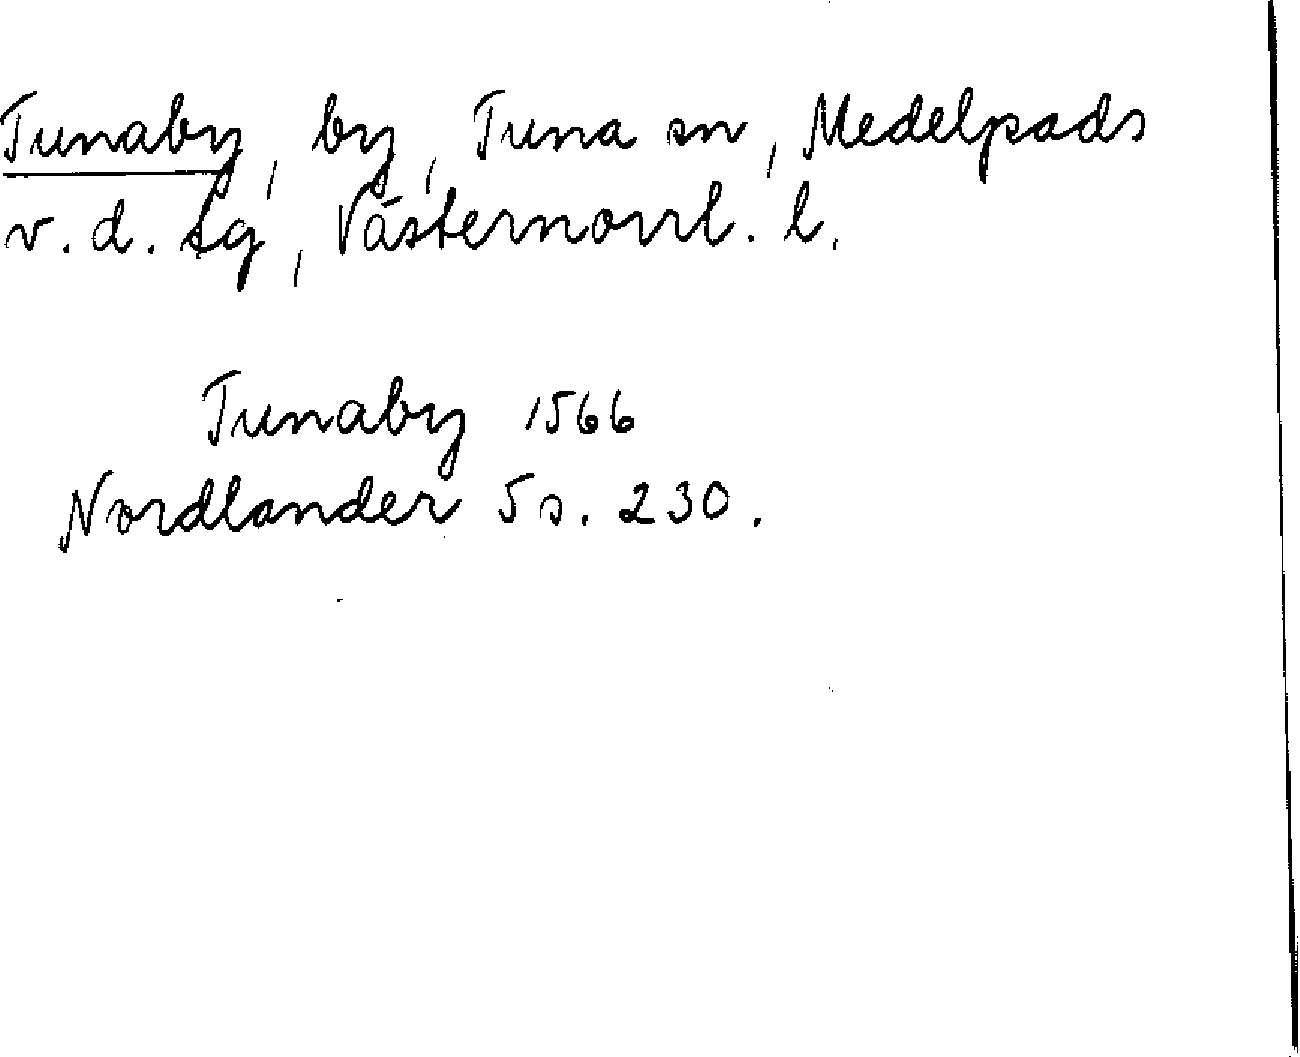 Tunaby, by, Tuna sn, Medelpads
v. d. tg, Västernorrl. l.
Tunaby 1566
Nordlander 5 s. 230.